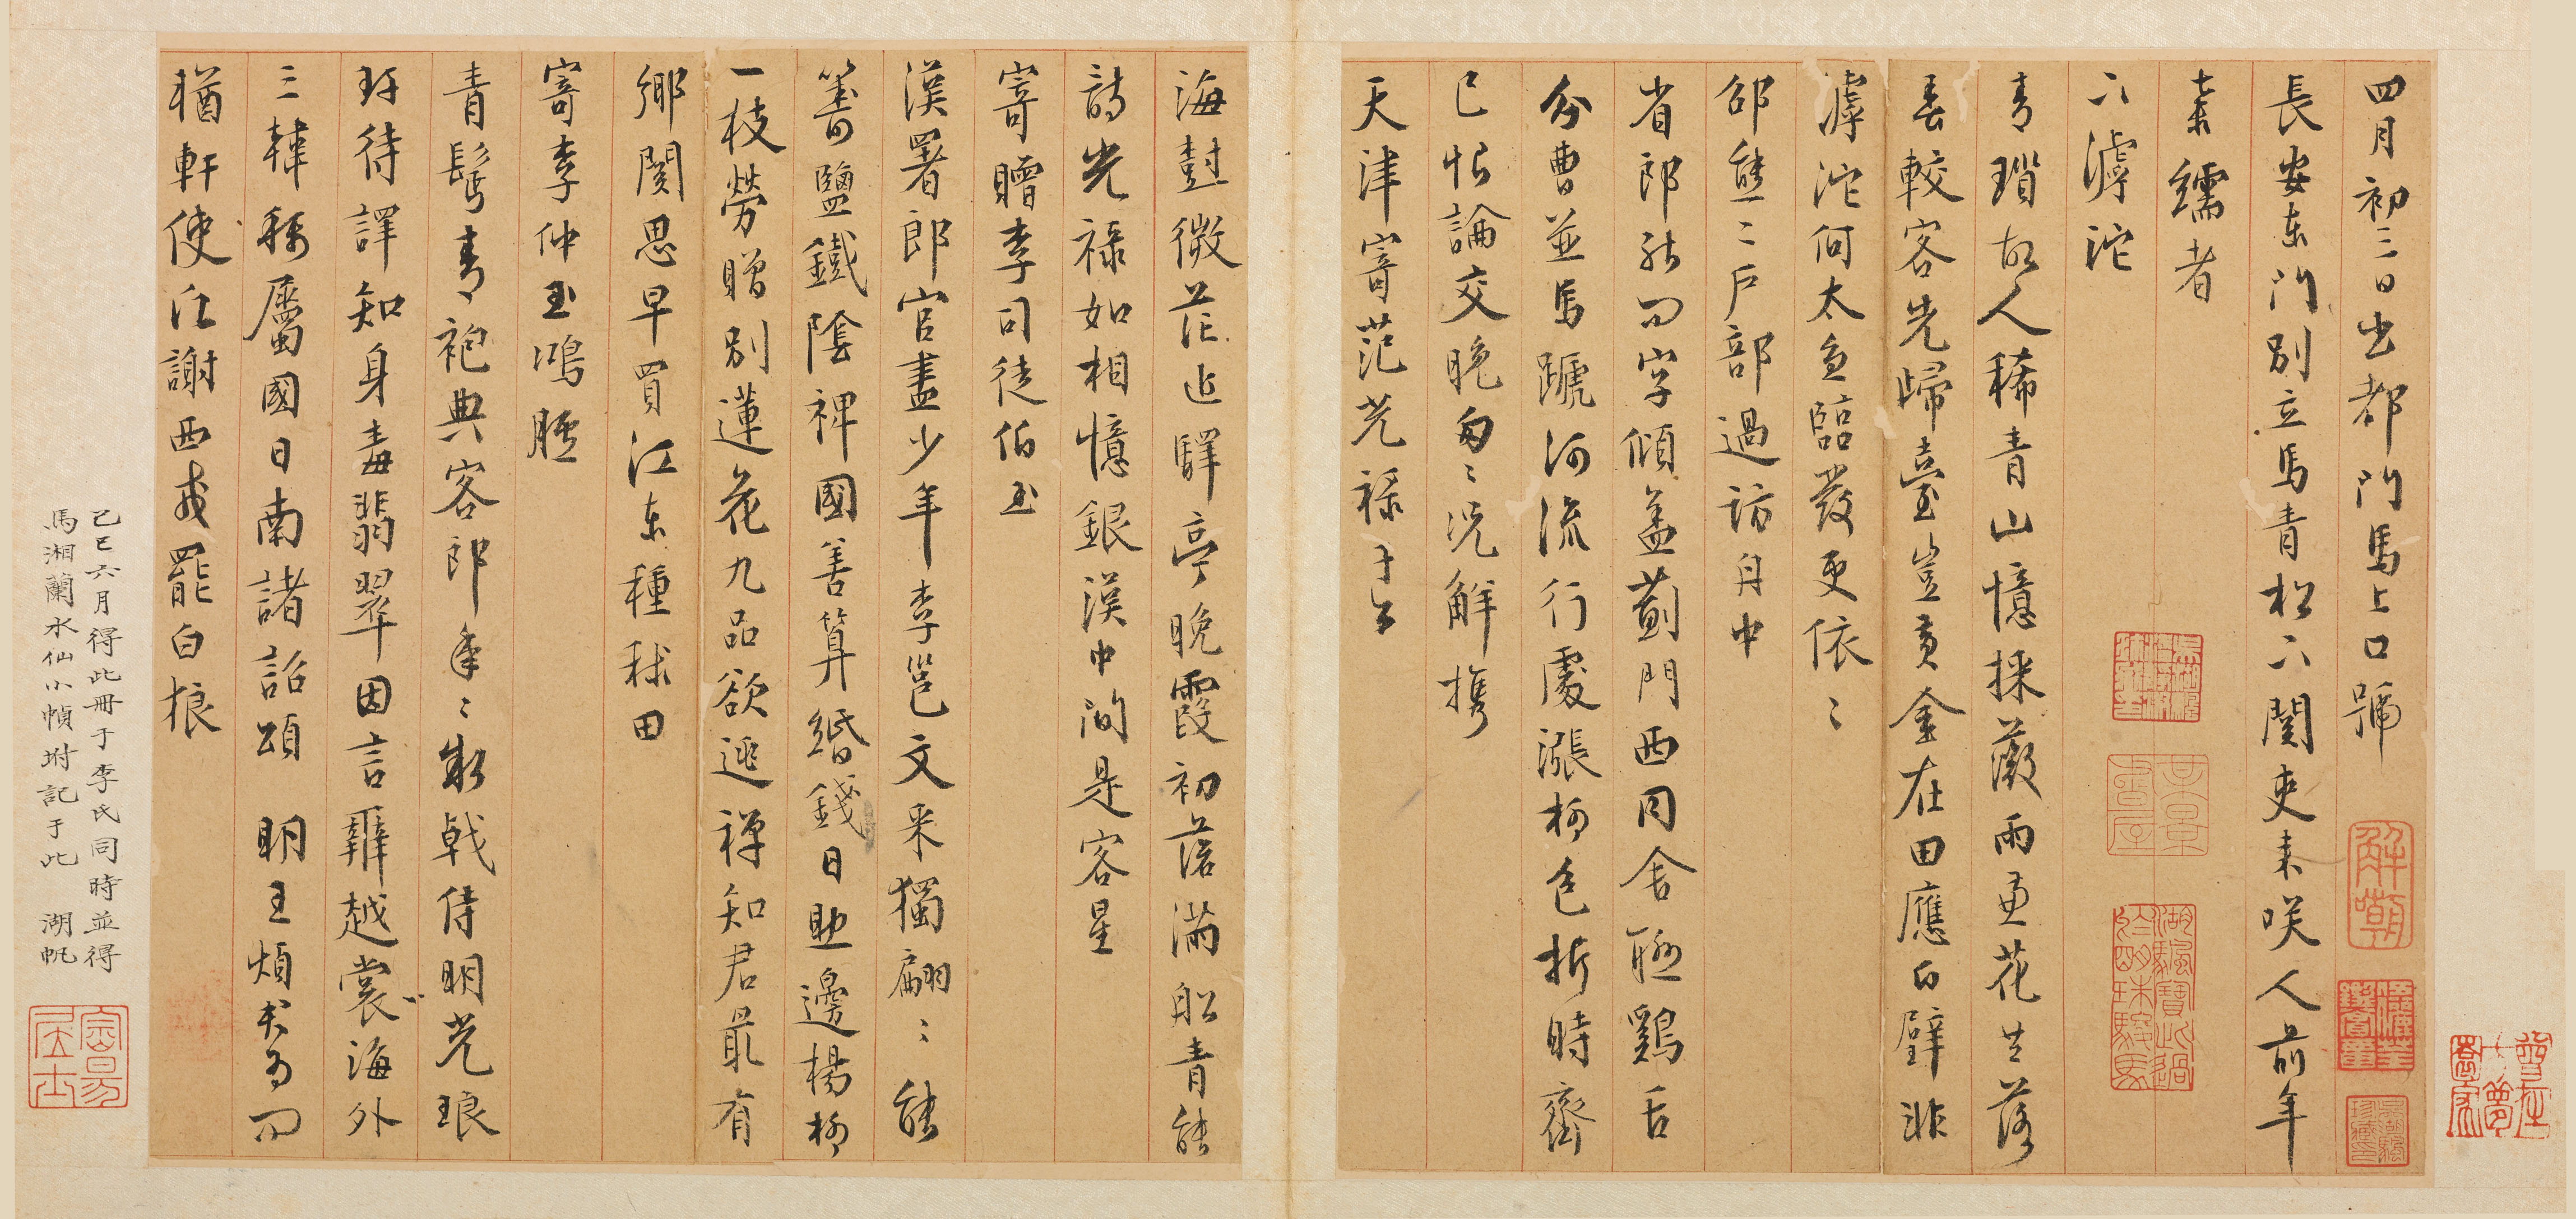 四月初三日出都門馬上口號
長安東門別立馬青松下關吏來咲人前年
棄繻者
下滹沱
青瑣故人稀青山憶採薇雨兼花共落
春較客先歸臺豈黃金在田應白璧非
滹沱何太急臨發更依〻
邵熊二戶部過訪舟中
省郎能問字傾蓋薊門西同舍聯鷄舌
分曹並馬蹏河流行處漲柳色折時齊
已悵論交晚匆〻況解攜
天津寄范光祿子公
海對微茫近驛亭晚霞初落滿船青能
詩光祿如相憶銀漢中間是客星
寄贈李司徒伯玉
漢署郎官盡少年李邕文采獨翩〻能
籌鹽鐵陰裨國善算緡錢日助邊楊柳
一枝勞贈別蓮花九品欲逃禪知君最有
鄉關思早買江東種秫田
寄李仲玉鴻臚
青髩青袍典客郎年〻執戟侍明光琅
玕待譯知身毒翡翠因言辨越裳海外
三韓稱屬國日南諸詔頌明王煩君爲問
輶軒使汪謝西戎罷白狼
己巳六月得此冊于李氏同時並得
馬湘蘭水仙小幀坿記于此 湖帆
解嘲